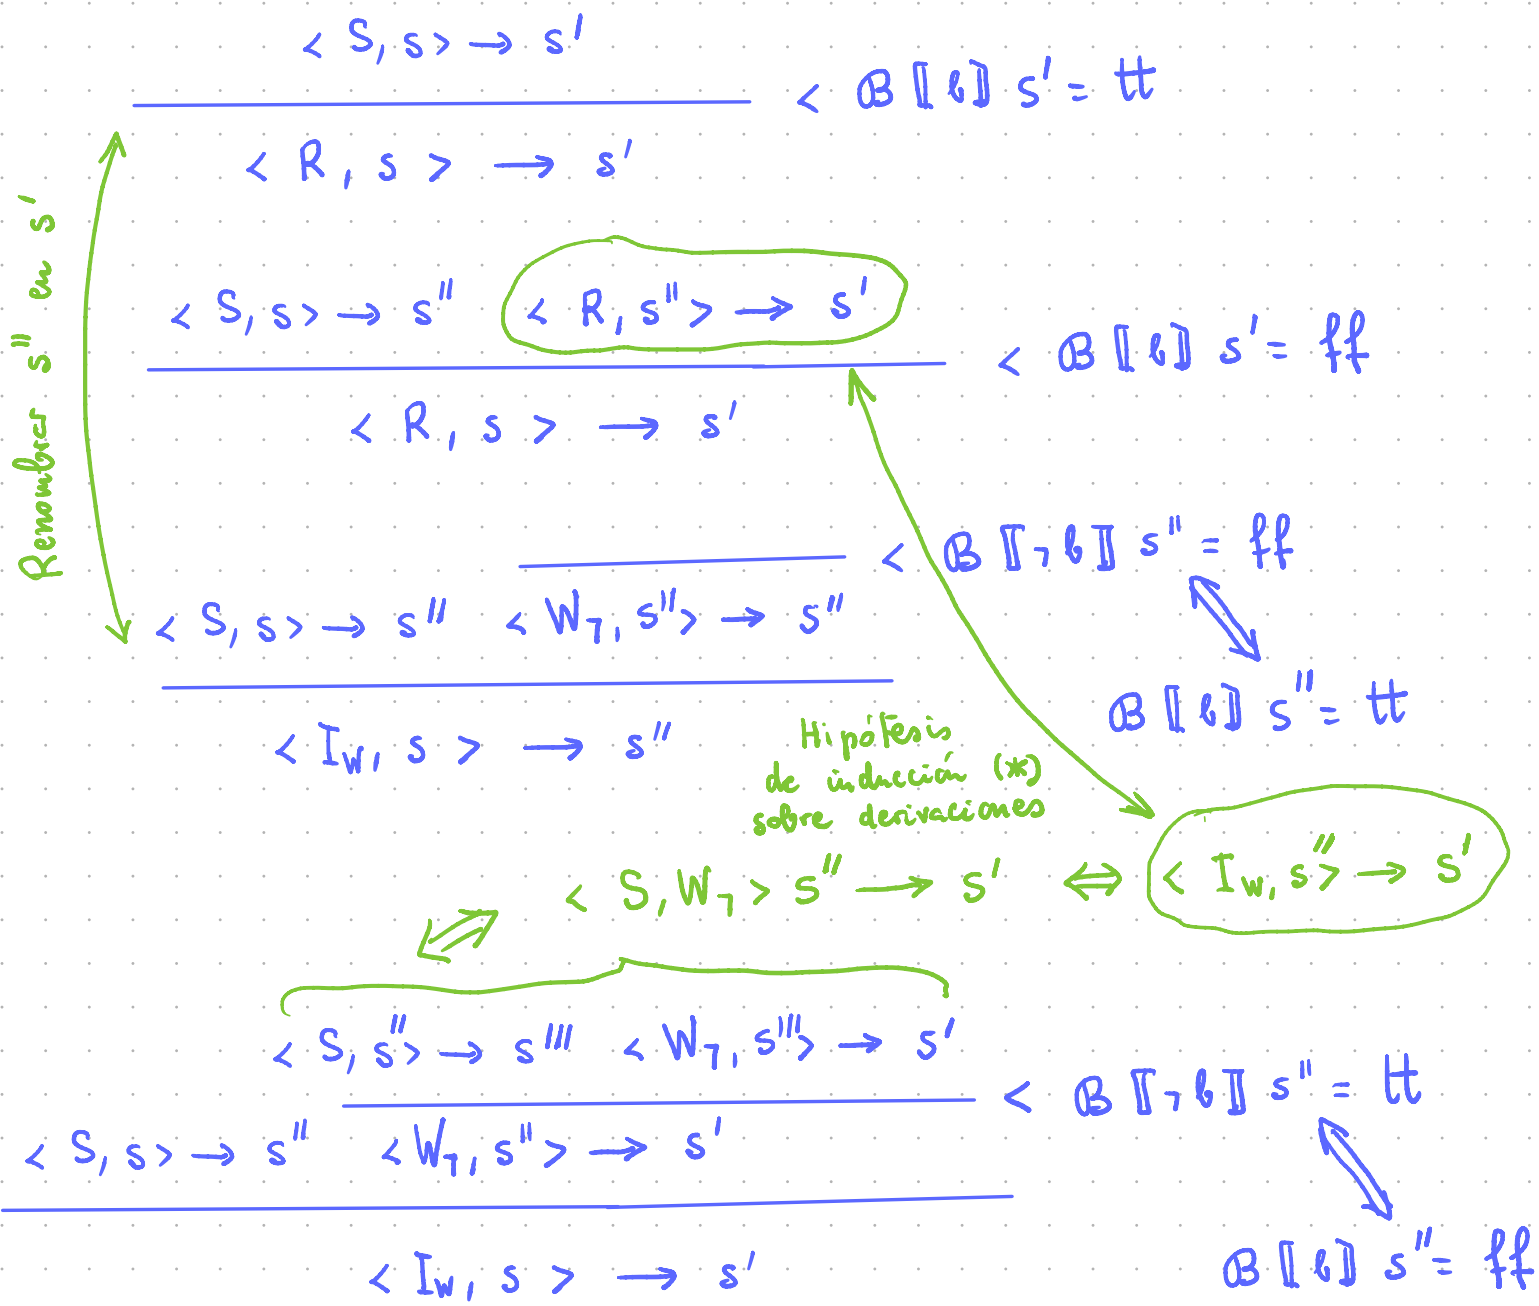 < S, s > → s'
< 𝔹 ⟦ b ⟧ s' = tt
< R, s > → s'
Renombrar s'' en s'
< S, s > → s'' < R, s'' > → s'
< 𝔹 ⟦ b ⟧ s' = ff
< R, s > → s'
< 𝔹 ⟦ ¬ b ⟧ s'' = ff
< S, s > → s'' < W¬, s'' > → s''
𝔹 ⟦ b ⟧ s'' = tt
< I_W, s > → s''
Hipótesis
de inducción (*)
sobre derivaciones
< S, W¬ > s'' → s' ⇔ < I_W, s'' > → s'
< S, s'' > → s''' < W¬, s''' > → s'
< 𝔹 ⟦ ¬ b ⟧ s'' = tt
< S, s > → s'' < W¬, s'' > → s'
< I_W, s > → s'
𝔹 ⟦ b ⟧ s'' = ff